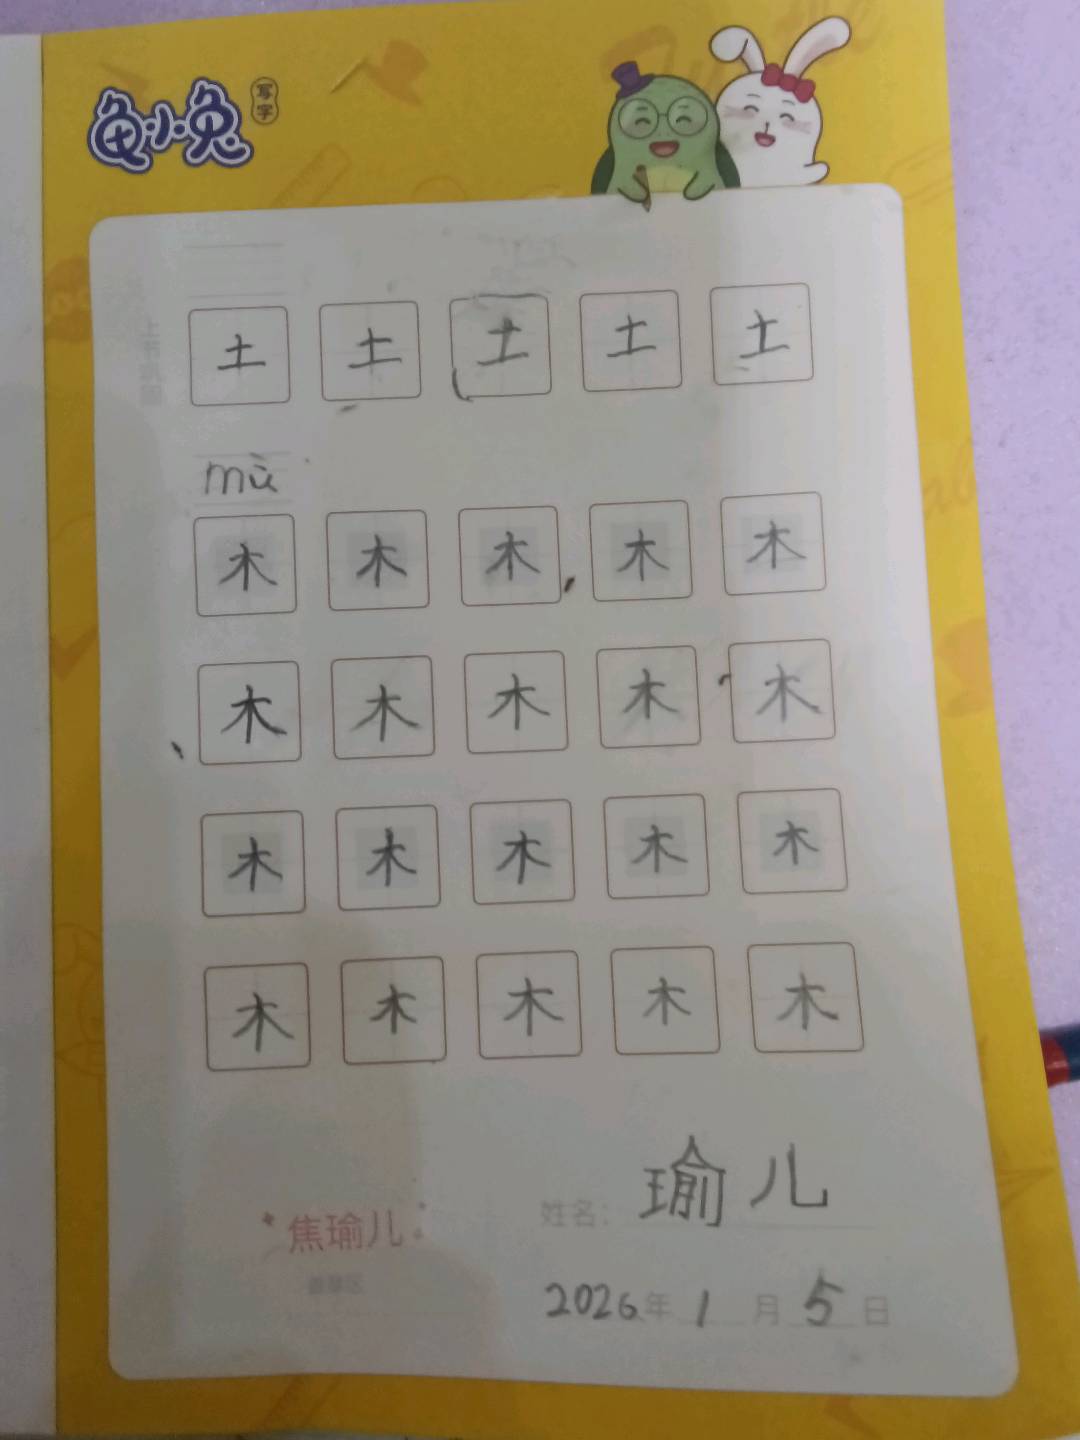 龟小兔 写字
土 土 土 土 土
mù
木 木 木 木 木
木 木 木 木 木
木 木 木 木 木
木 木 木 木 木
焦瑜儿 姓名: 瑜儿
2026年1月5日